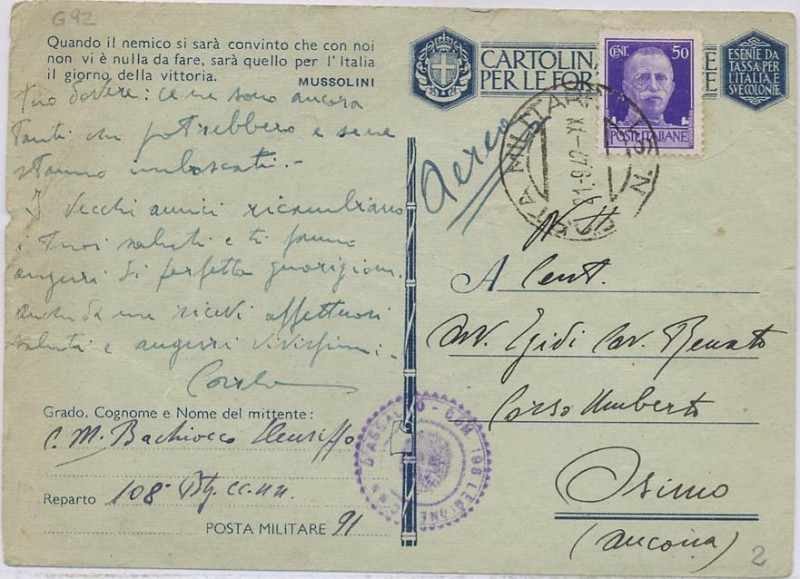 G92
Quando il nemico si sarà convinto che con noi
non vi è nulla da fare, sarà quello per l'Italia
il giorno della vittoria.
MUSSOLINI
tuo dovere: ce ne sono ancora
tanti che potrebbero e se ne
stanno imboscati.-
I vecchi amici ricambiano
i tuoi saluti e ti fanno
auguri di perfetta guarigione.
anche da me ricevi affettuosi
saluti e auguri vivissimi.-
Grado, Cognome e Nome del mittente:
C. M. Bachiocco
Reparto 108° Btg. CC.NN.
POSTA MILITARE 91
CARTOLINA
PER LE FOR
ESENTE DA
TASSA PER
L'ITALIA E
SVE COLONIE
CENT. 50
POSTE ITALIANE
POSTA MILITARE N
XX
Aerea
D'ASSALTO - COM 108 LEGIONE CC.NN.
A Cent.
Avv. Egidi Cav. Renato
Corso Umberto
Osimo
(Ancona)
2